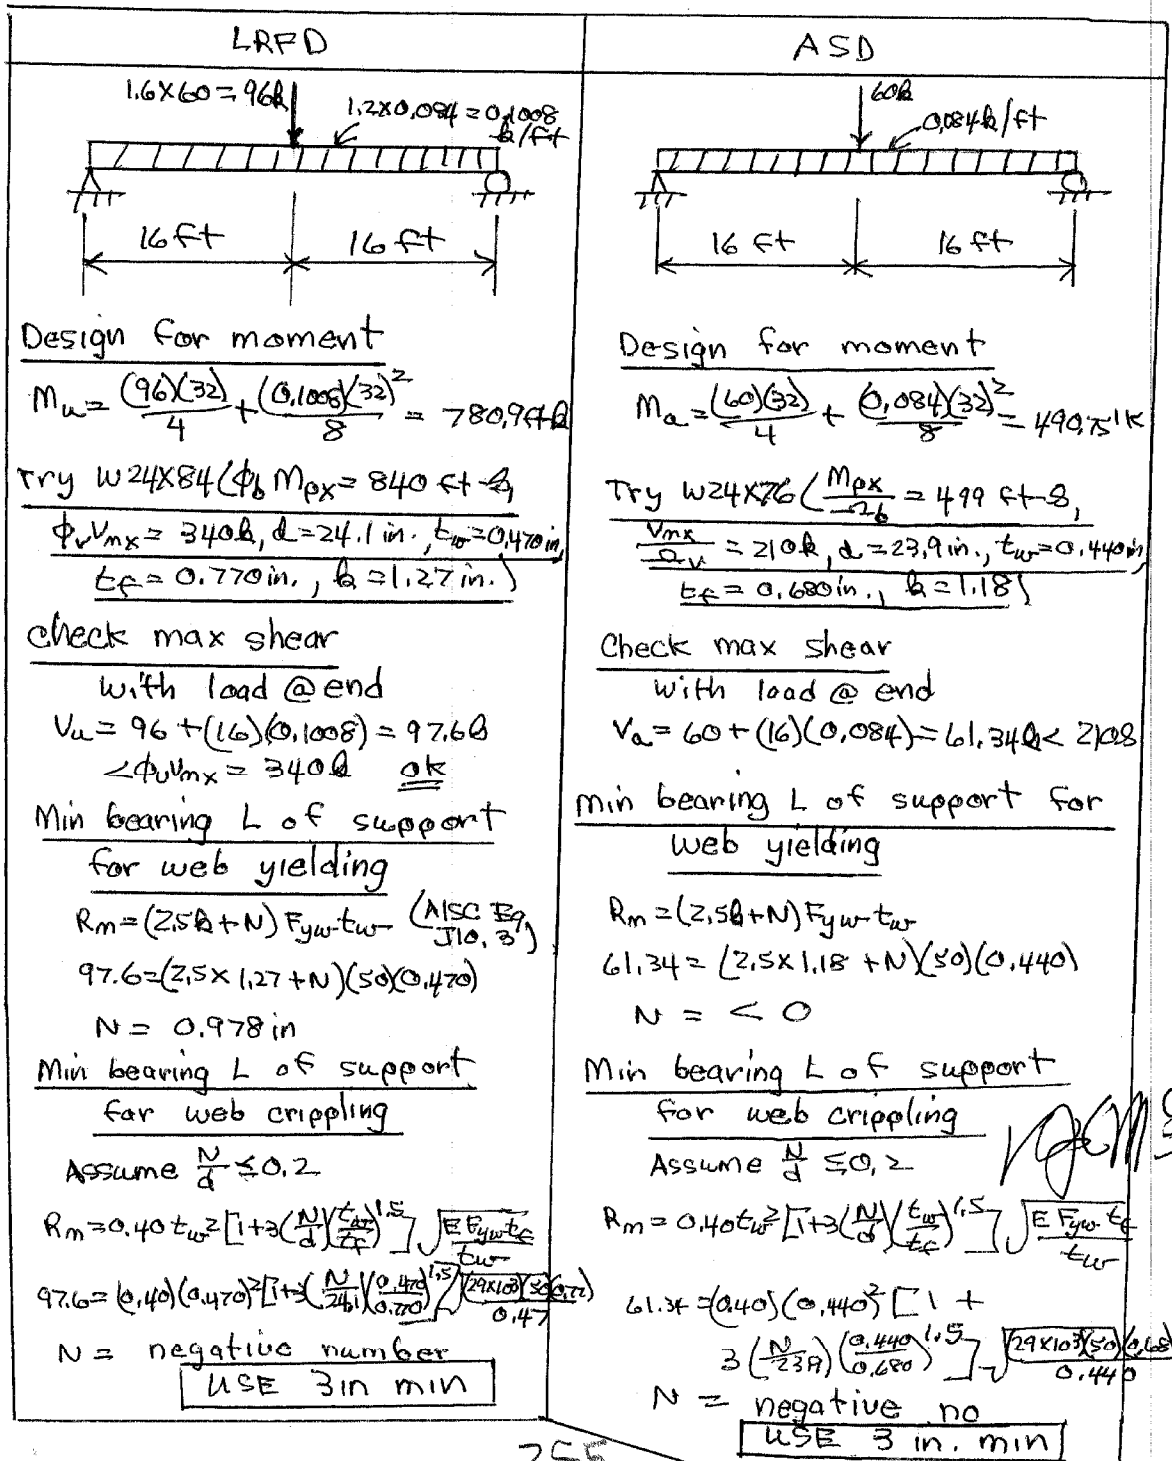 LRFD
1.6×60=96k
1.2×0.084=0.1008
k/ft
16 ft
16 ft
Design for moment
Mu = (96)(32)/4 + (0.1008)(32)²/8 = 780.9 ft-k
Try W24×84 (φb Mpx = 840 ft-k,
φvVnx = 340k, d=24.1 in., tw=0.470 in,
tf = 0.770 in., k=1.27 in.)
Check max shear
with load @ end
Vu = 96 + (16)(0.1008) = 97.6k
<φvVnx = 340k ok
Min bearing L of support
for web yielding
Rn = (2.5k+N) Fyw tw (AISC Eq J10.3)
97.6=(2.5×1.27+N)(50)(0.470)
N = 0.978 in
Min bearing L of support
for web crippling
Assume N/d ≤ 0.2
Rn = 0.40 tw² [1+3(N/d)(tw/tf)^1.5] √(E Fyw tf/tw)
97.6 = (0.40)(0.470)² [1+3(N/24.1)(0.470/0.770)^1.5] √((29×10³)(50)(0.77)/0.47)
N = negative number
USE 3 in min
ASD
60k
0.084k/ft
16 ft
16 ft
Design for moment
Ma = (60)(32)/4 + (0.084)(32)²/8 = 490.75 'k
Try W24×76 (Mpx/Ωb = 499 ft-k,
Vnx/Ωv = 210k, d=23.9 in., tw=0.440 in,
tf = 0.680 in., k=1.18)
Check max shear
with load @ end
Va = 60 + (16)(0.084) = 61.34k < 210k
Min bearing L of support for
web yielding
Rn = (2.5k+N) Fyw tw
61.34 = (2.5×1.18 + N)(50)(0.440)
N = < 0
Min bearing L of support
for web crippling
Assume N/d ≤ 0.2
Rn = 0.40 tw² [1+3(N/d)(tw/tf)^1.5] √(E Fyw tf/tw)
61.34 = (0.40)(0.440)² [1 +
3(N/23.9)(0.440/0.680)^1.5] √((29×10³)(50)(0.68)/0.440)
N = negative no
USE 3 in. min